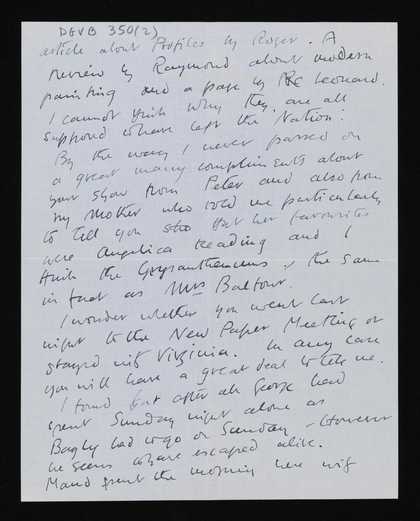 DEVB 350(2)
article about Profiles by Roger. A
review by Raymond about modern
painting and a page by Leonard.
I cannot think why they are all
supposed to have left the Nation!
By the way I never passed on
a great many compliments about
your show from Peter and also from
my Mother who told me particularly
to tell you that her favourites
were Angelica Reading and I
think the Chrysanthemums, the same
in fact as Mrs Balfour.
I wonder whether you went last
night to the New Paper Meeting or
stayed with Virginia. In any case
you will have a great deal to tell me.
I found that after all George had
spent Sunday night alone as
Bagby had to go on Sunday - However
he seems to have escaped alive.
Maud spent the morning here with